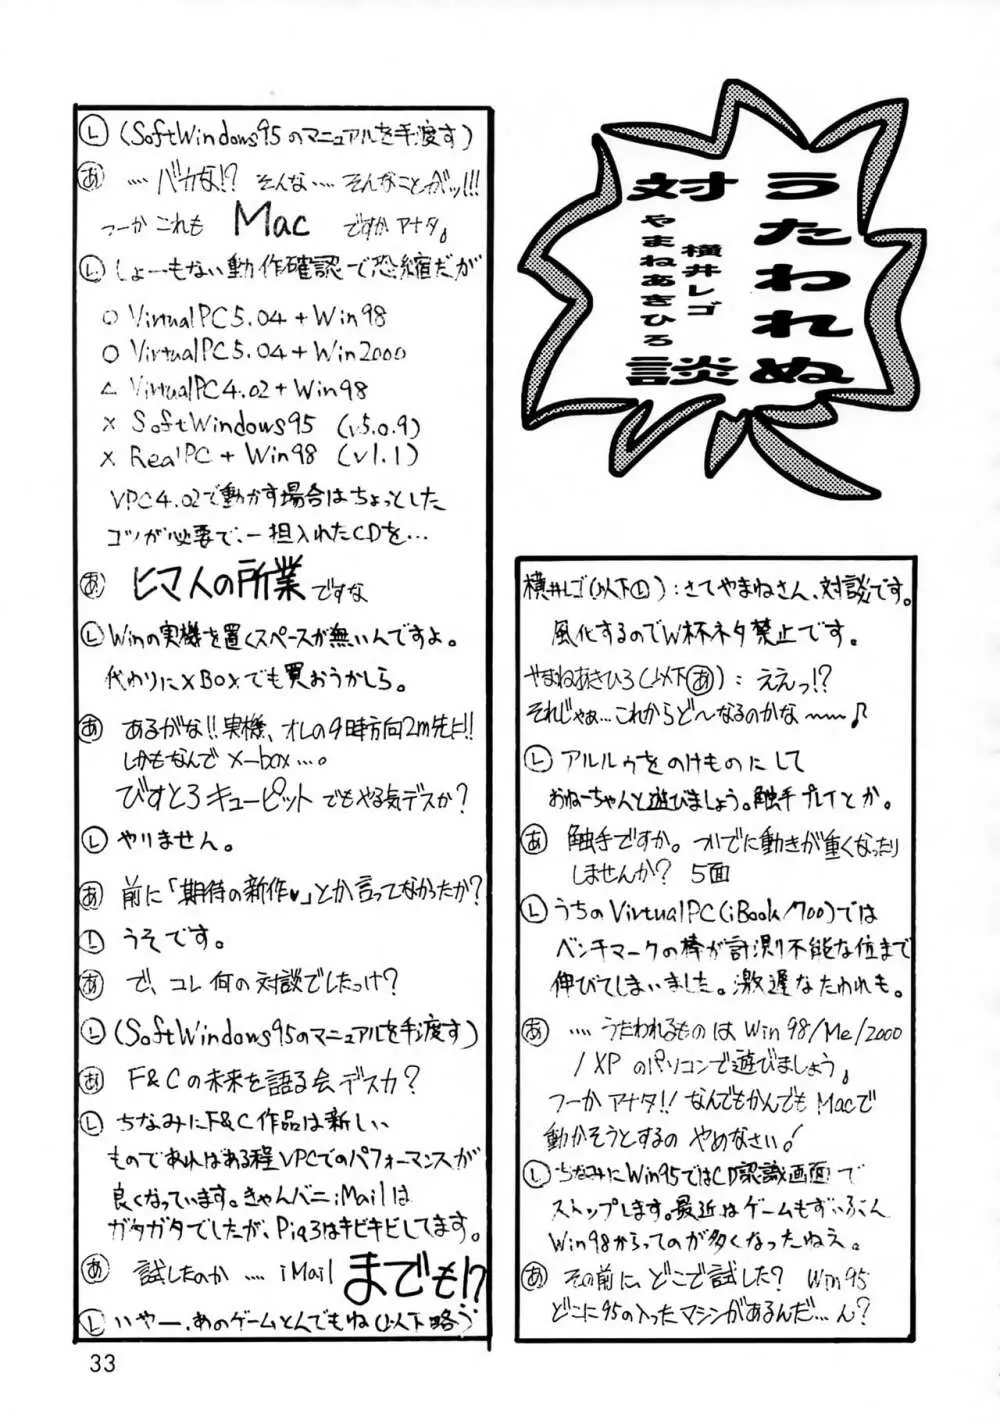 うたわれぬ
対談
横井レゴ
やまねあきひろ
横井レゴ(以下Ⓛ):さてやまねさん、対談です。
風化するのでW杯ネタ禁止です。
やまねあきひろ(以下あ):ええっ!?
それじゃぁ…これからど〜なるのかな〜〜〜♪
Ⓛ アルルゥをのけものにして
おねーちゃんと遊びましょう。触手プレイとか。
あ 触手ですか。ついでに動きが重くなったり
しませんか? 5面
Ⓛ うちのVirtualPC(iBook/700)では
ベンチマークの棒が計測不能な位まで
伸びてしまいました。激遅なたわれも。
あ ‥‥うたわれるものは Win98/Me/2000
/XP のパソコンで遊びましょう。
つーか アナタ!! なんでもかんでもMacで
動かそうとするの やめなさい!
Ⓛ ちなみにWin95ではCD認識画面で
ストップします。最近はゲームもずいぶん
Win98からってのが多くなったねえ。
あ その前に、どこで試した? Win95
どこに95の入ったマシンがあるんだ…ん?
Ⓛ (SoftWindows95のマニュアルを手渡す)
あ ‥‥バカな!? そんな‥‥そんなことがッ!!!
つーか これも Mac ですか アナタ。
Ⓛ しょーもない動作確認で恐縮だが
○ VirtualPC5.04+Win98
○ VirtualPC5.04+Win2000
△ VirtualPC4.02+Win98
× SoftWindows95 (v5.0.9)
× RealPC+Win98 (v1.1)
VPC4.02で動かす場合はちょっとした
コツが必要で、一担入れたCDを…
あ ヒマ人の所業ですな
Ⓛ Winの実機を置くスペースが無いんですよ。
代わりにXBoxでも買おうかしら。
あ あるがな!!実機、オレの9時方向2m先に!!
しかもなんで X-box…。
びすとろキューピット でもやる気デスか?
Ⓛ やりません。
あ 前に「期待の新作♥」とか言ってなかったか?
Ⓛ うそです。
あ で、コレ何の対談でしたっけ?
Ⓛ (SoftWindows95のマニュアルを手渡す)
あ F&Cの未来を語る会デスカ?
Ⓛ ちなみにF&C作品は新しい
ものであればある程VPCでのパフォーマンスが
良くなっています。きゃんバニiMailは
ガタガタでしたが、Pia3はキビキビしてます。
あ 試したのか ‥‥ iMail までも!?
Ⓛ いやー、あのゲームとんでもね(以下略)
33